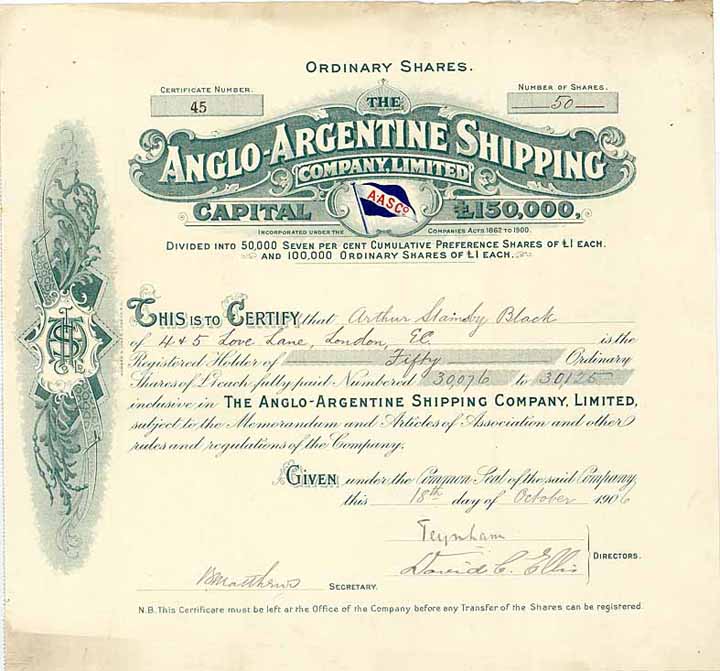 ORDINARY SHARES.
CERTIFICATE NUMBER.
45
NUMBER OF SHARES.
50
THE
ANGLO-ARGENTINE SHIPPING
COMPANY, LIMITED
A.A.S.Co
CAPITAL £150,000,
INCORPORATED UNDER THE COMPANIES ACTS 1862 TO 1900.
DIVIDED INTO 50,000 SEVEN PER CENT CUMULATIVE PREFERENCE SHARES OF £1 EACH.
AND 100,000 ORDINARY SHARES OF £1 EACH.
THIS IS TO CERTIFY that Arthur Stainsby Black
of 4 & 5 Love Lane, London, E.C. is the
Registered Holder of Fifty Ordinary
Shares of £1 each fully paid Numbered 30,076 to 30,125
inclusive in THE ANGLO-ARGENTINE SHIPPING COMPANY, LIMITED,
subject to the Memorandum and Articles of Association and other
rules and regulations of the Company.
GIVEN under the Common Seal of the said Company
this 18th day of October 1906
Teynham
David C. Ellis
DIRECTORS.
B Matthews SECRETARY.
N.B. This Certificate must be left at the Office of the Company before any Transfer of the Shares can be registered.